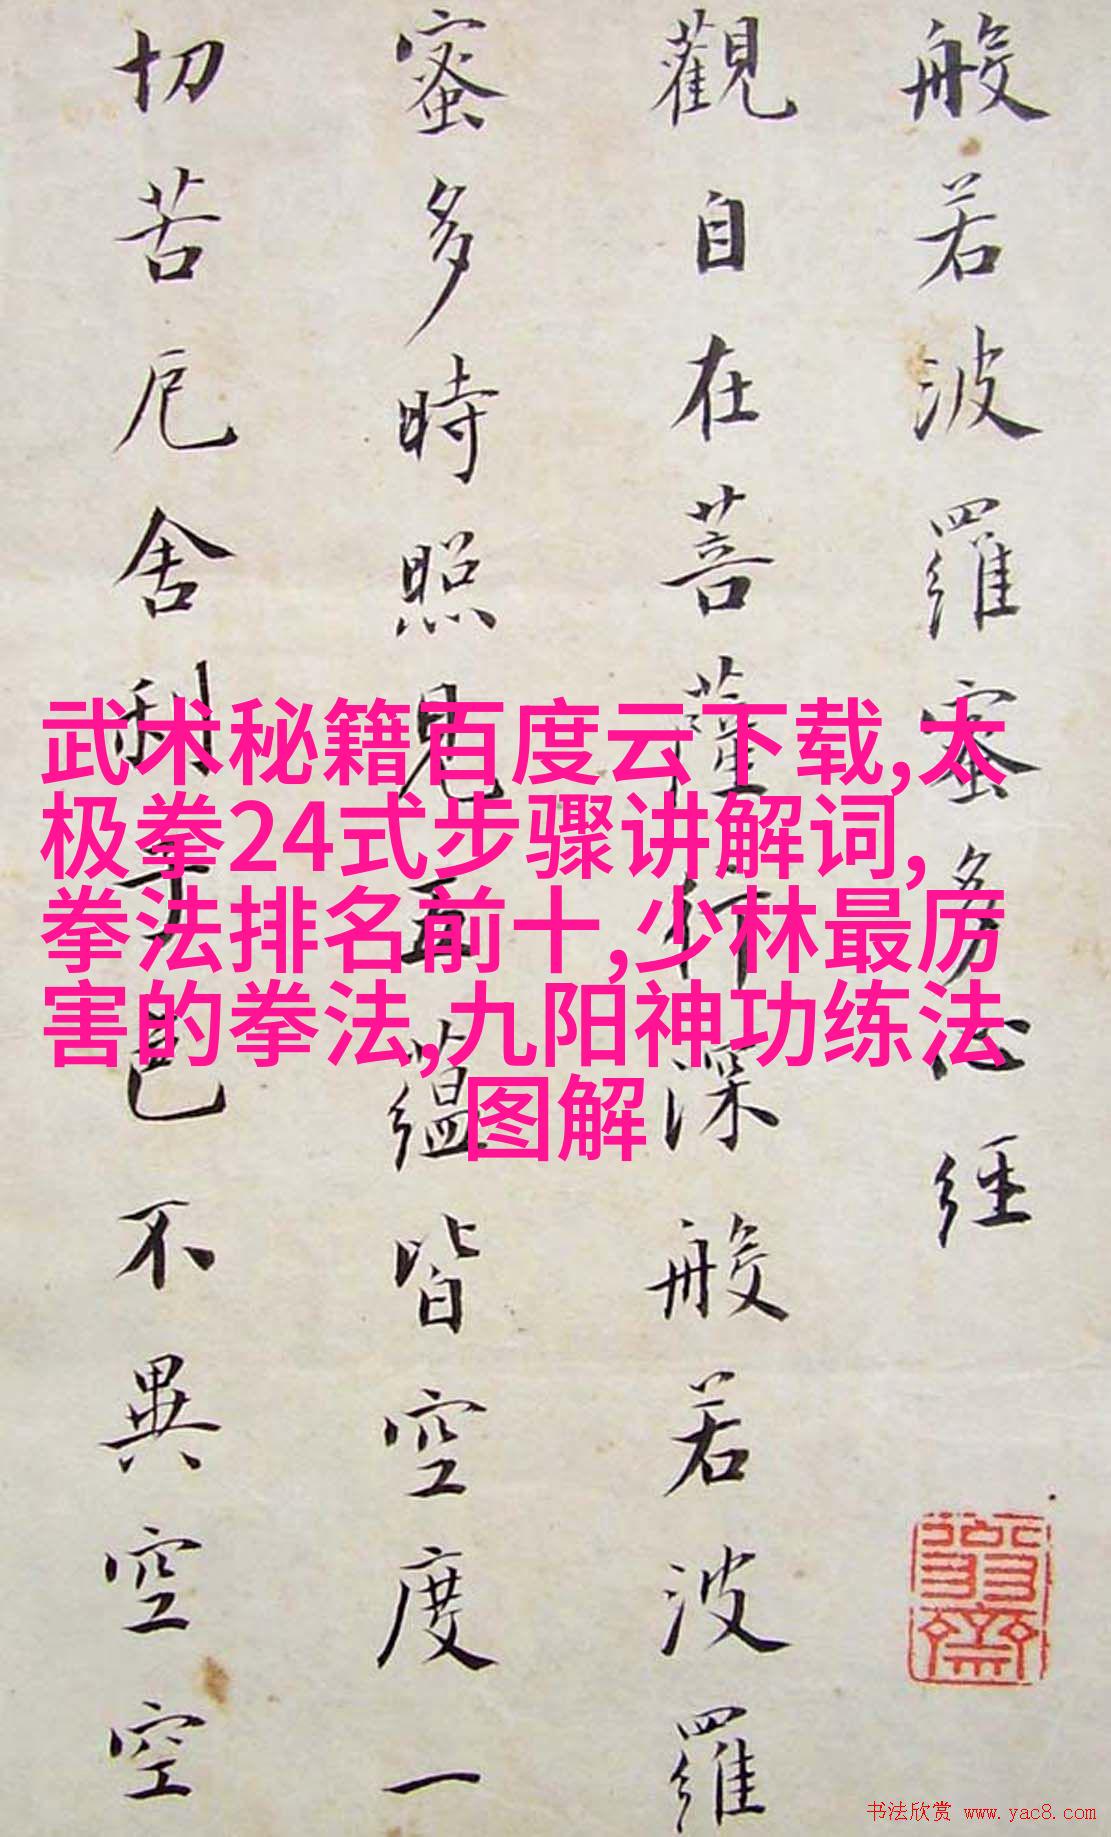 般若波羅蜜多心經
觀自在菩薩行深般若波羅
蜜多時照見五蘊皆空度一
切苦厄舍利子色不異空空
武术秘籍百度云下载,太
极拳24式步骤讲解词,
拳法排名前十,少林最厉
害的拳法,九阳神功练法
图解
书法欣赏 www.yac8.com